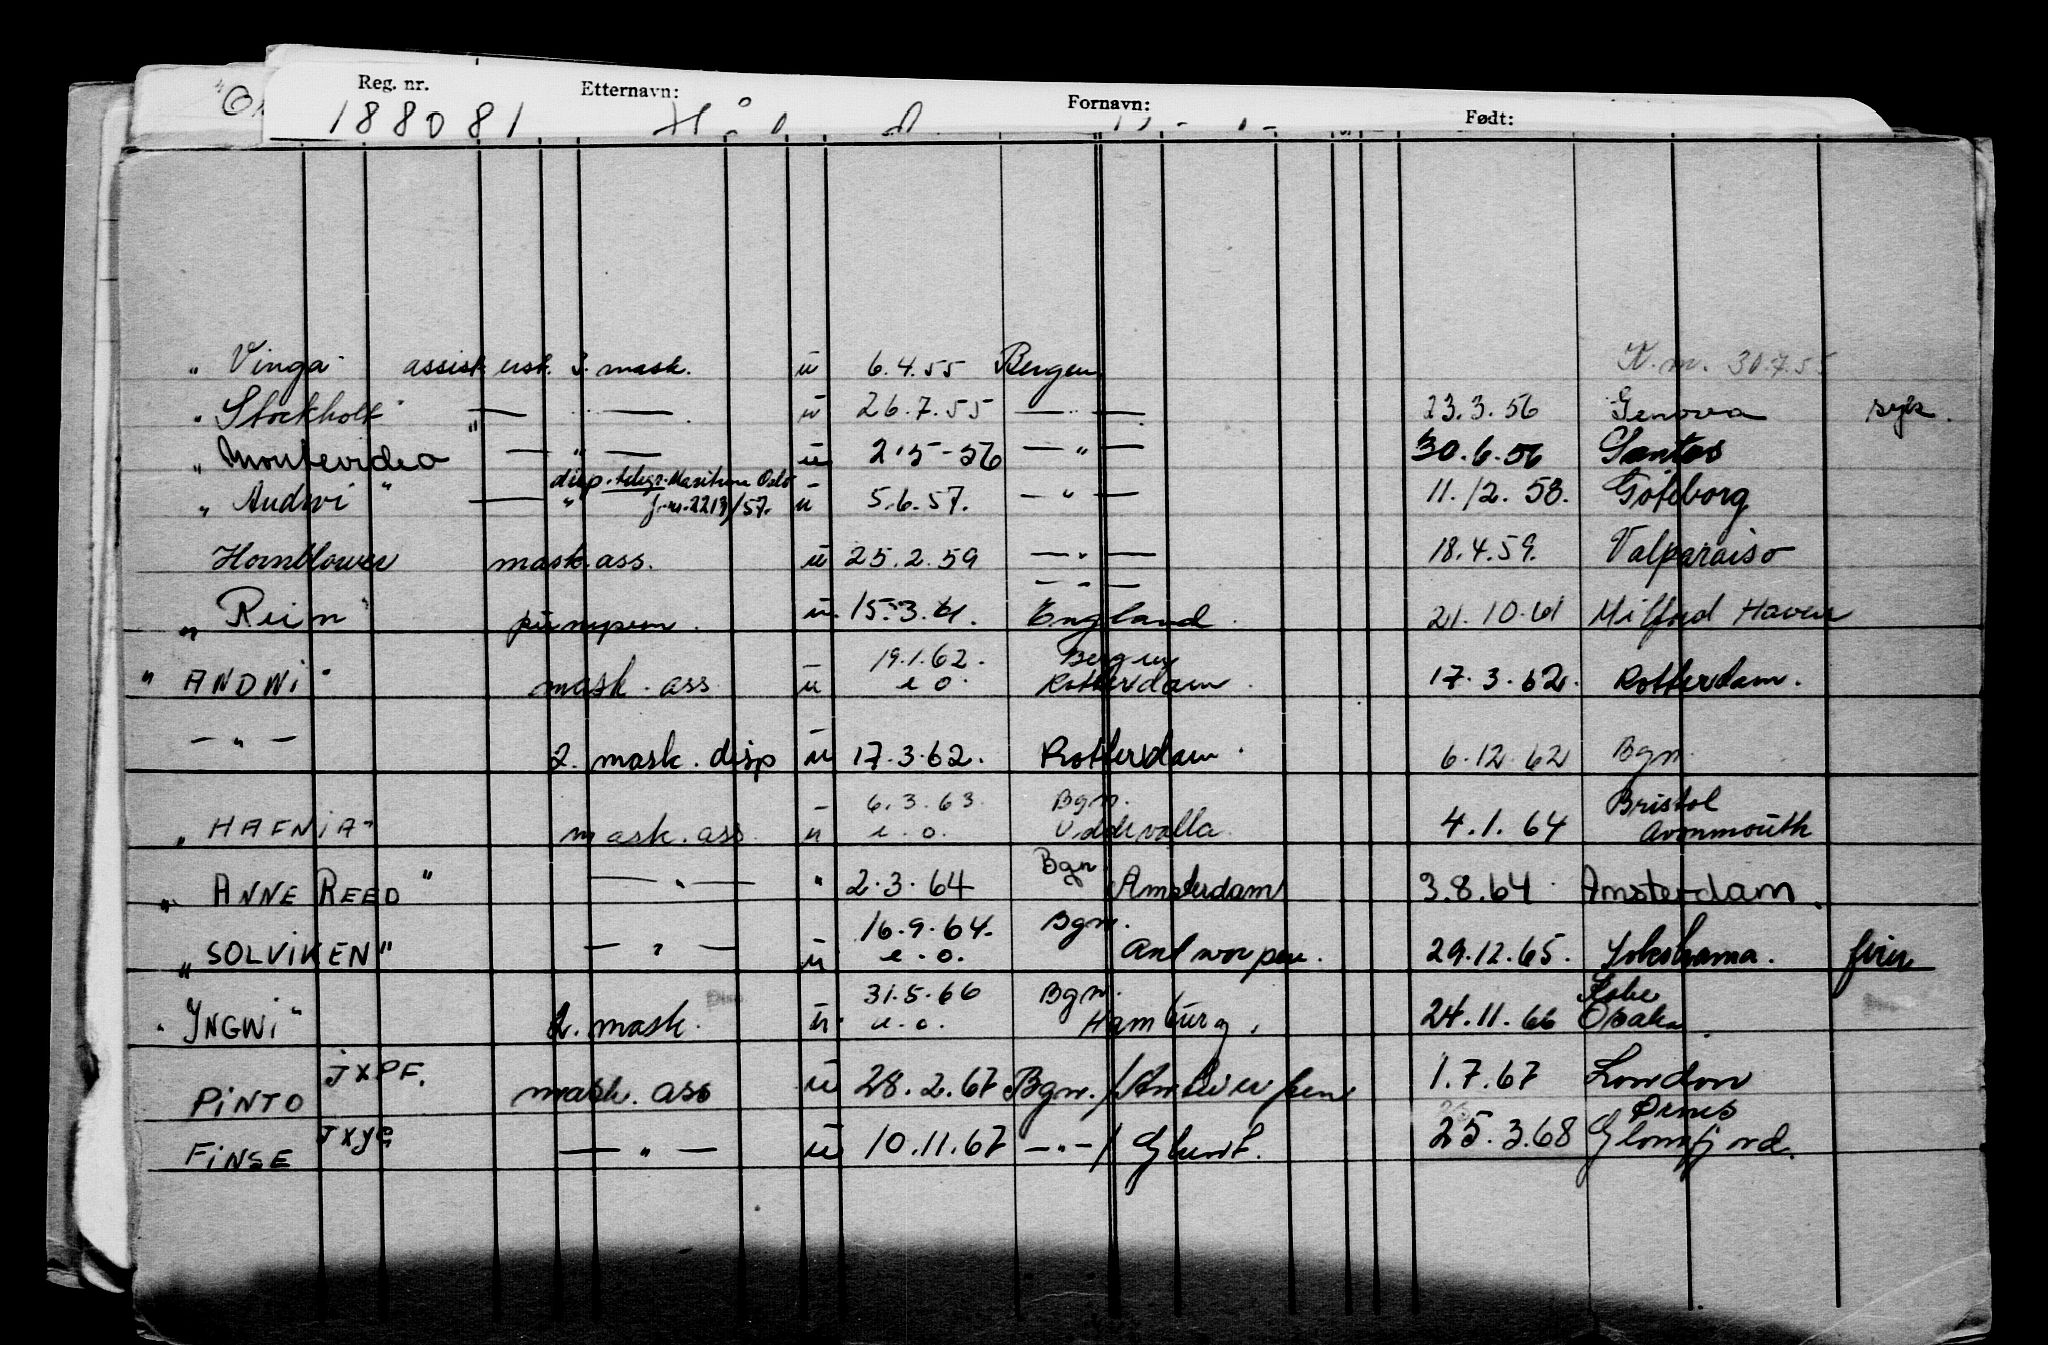 Reg. nr. Etternavn: Fornavn: Født:
188081
" Vinga " assisk. usk. 3. mask. ü 6.4.55 Bergen K.m. 30.7.55
" Stockholt " — " — ü 26.7.55 — " — 23.3.56 Genova syk.
" Montevideo — " — ü 2.5-56 — " — 30.6.56 Santos
disp. telegr. Maritime Oslo
" Audwi " — " — j.nr. 2213/57. ü 5.6.57. — " — 11.12.58. Göteborg
Hornblower mask ass. ü 25.2.59 — " — 18.4.59. Valparaiso
— " —
" Rein " pumpem. ü 15.3.61. England. 21.10.61 Milford Haven
19.1.62. Bergen
" ANDWi " mask. ass ü e o. Rotterdam. 17.3.62. Rotterdam.
— " — 2. mask. disp ü 17.3.62. Rotterdam. 6.12.62 Bgn.
6.3.63. Bgn. Bristol
" HAFNiA " mask. ass. ü e. o. Uddevalla. 4.1.64 Avonmouth
Bgn.
" ANNE REED " — " — " 2.3.64 Amsterdam 3.8.64. Amsterdam.
16.9.64. Bgn.
" SOLViKEN " — " — ü e. o. Antwerpen. 29.12.65. Yokohama.
31.5.66 Bgn. Kobe
" YNGWi " 2. mask. ü e. o. Hamburg. 24.11.66 Osaka.
PiNTO JXPF. mask. ass ü 28.2.67 Bgn. / Antwerpen 1.7.67 London
Ørnes
FiNSE JXYG — " — ü 10.11.67 — " — / 25.3.68 Glomfjord.